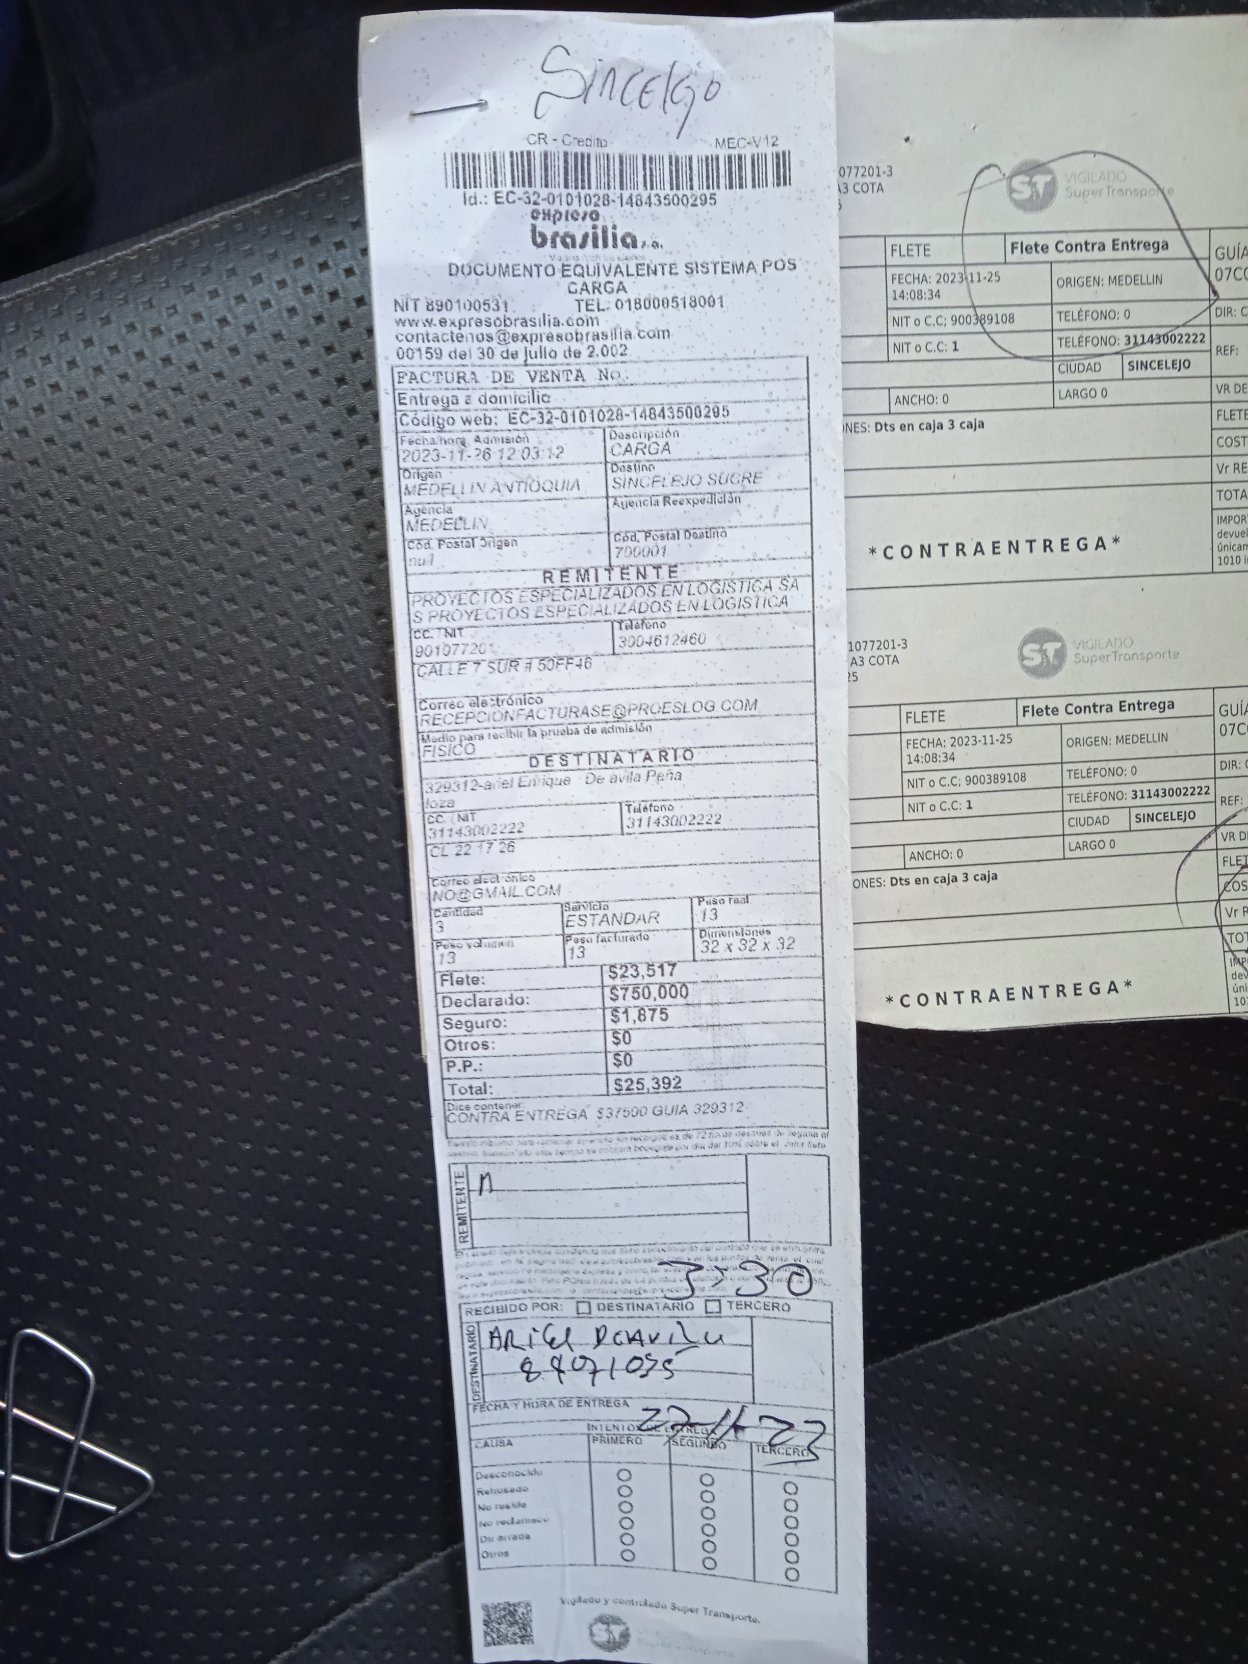 Sincelejo
CR - Credito MEC-V12
Id.: EC-32-0101028-14843500295
expreso
brasilia s.a.
DOCUMENTO EQUIVALENTE SISTEMA POS
CARGA
NIT 890100531 TEL: 018000518001
www.expresobrasilia.com
contactenos@expresobrasilia.com
00159 del 30 de julio de 2.002
FACTURA DE VENTA No.:
Entrega a domicilio
Código web: EC-32-0101028-14843500295
Fecha/hora Admisión Descripción
2023-11-26 12:03:12 CARGA
Origen Destino
MEDELLIN ANTIOQUIA SINCELEJO SUCRE
Agencia Agencia Reexpedición
MEDELLIN
Cód. Postal Origen Cód. Postal Destino
null 700001
REMITENTE
PROYECTOS ESPECIALIZADOS EN LOGISTICA SA
S PROYECTOS ESPECIALIZADOS EN LOGISTICA
CC. / NIT Teléfono
901077201 3004612460
CALLE 7 SUR # 50FF46
Correo electrónico
RECEPCIONFACTURASE@PROESLOG.COM
Medio para recibir la prueba de admisión
FISICO
DESTINATARIO
329312-ariel Enrique De avila Peña
loza
CC. / NIT Teléfono
31143002222 31143002222
CL 22 17 26
Correo electrónico
NO@GMAIL.COM
Cantidad Servicio Peso real
3 ESTANDAR 13
Peso volumen Peso facturado Dimensiones
13 13 32 x 32 x 32
Flete: $23,517
Declarado: $750,000
Seguro: $1,875
Otros: $0
P.P.: $0
Total: $25,392
Dice contener:
CONTRA ENTREGA $37500 GUIA 329312
REMITENTE
n
3:30
RECIBIDO POR: DESTINATARIO TERCERO
DESTINATARIO
FECHA Y HORA DE ENTREGA
INTENTOS DE ENTREGA
CAUSA PRIMERO SEGUNDO TERCERO
Desconocido
Rehusado
No reside
No reclamado
Dir. errada
Otros
Vigilado y controlado Super Transporte.
ST
077201-3
A3 COTA
ST VIGILADO
SuperTransporte
FLETE Flete Contra Entrega GUÍA
FECHA: 2023-11-25 ORIGEN: MEDELLIN 07CO
14:08:34
NIT o C.C; 900389108 TELÉFONO: 0 DIR: C
NIT o C.C: 1 TELÉFONO: 31143002222 REF:
CIUDAD SINCELEJO
ANCHO: 0 LARGO 0 VR DE
NES: Dts en caja 3 caja FLETE
COST
Vr RE
TOTA
*CONTRAENTREGA* IMPOR
devuel
únicam
1010 i
1077201-3
A3 COTA
25
ST VIGILADO
SuperTransporte
FLETE Flete Contra Entrega GUÍA
FECHA: 2023-11-25 ORIGEN: MEDELLIN 07CO
14:08:34
NIT o C.C; 900389108 TELÉFONO: 0 DIR: C
NIT o C.C: 1 TELÉFONO: 31143002222 REF:
CIUDAD SINCELEJO
ANCHO: 0 LARGO 0 VR D
ONES: Dts en caja 3 caja FLET
COS
Vr R
TOT
*CONTRAENTREGA* IMP
dev
úni
101